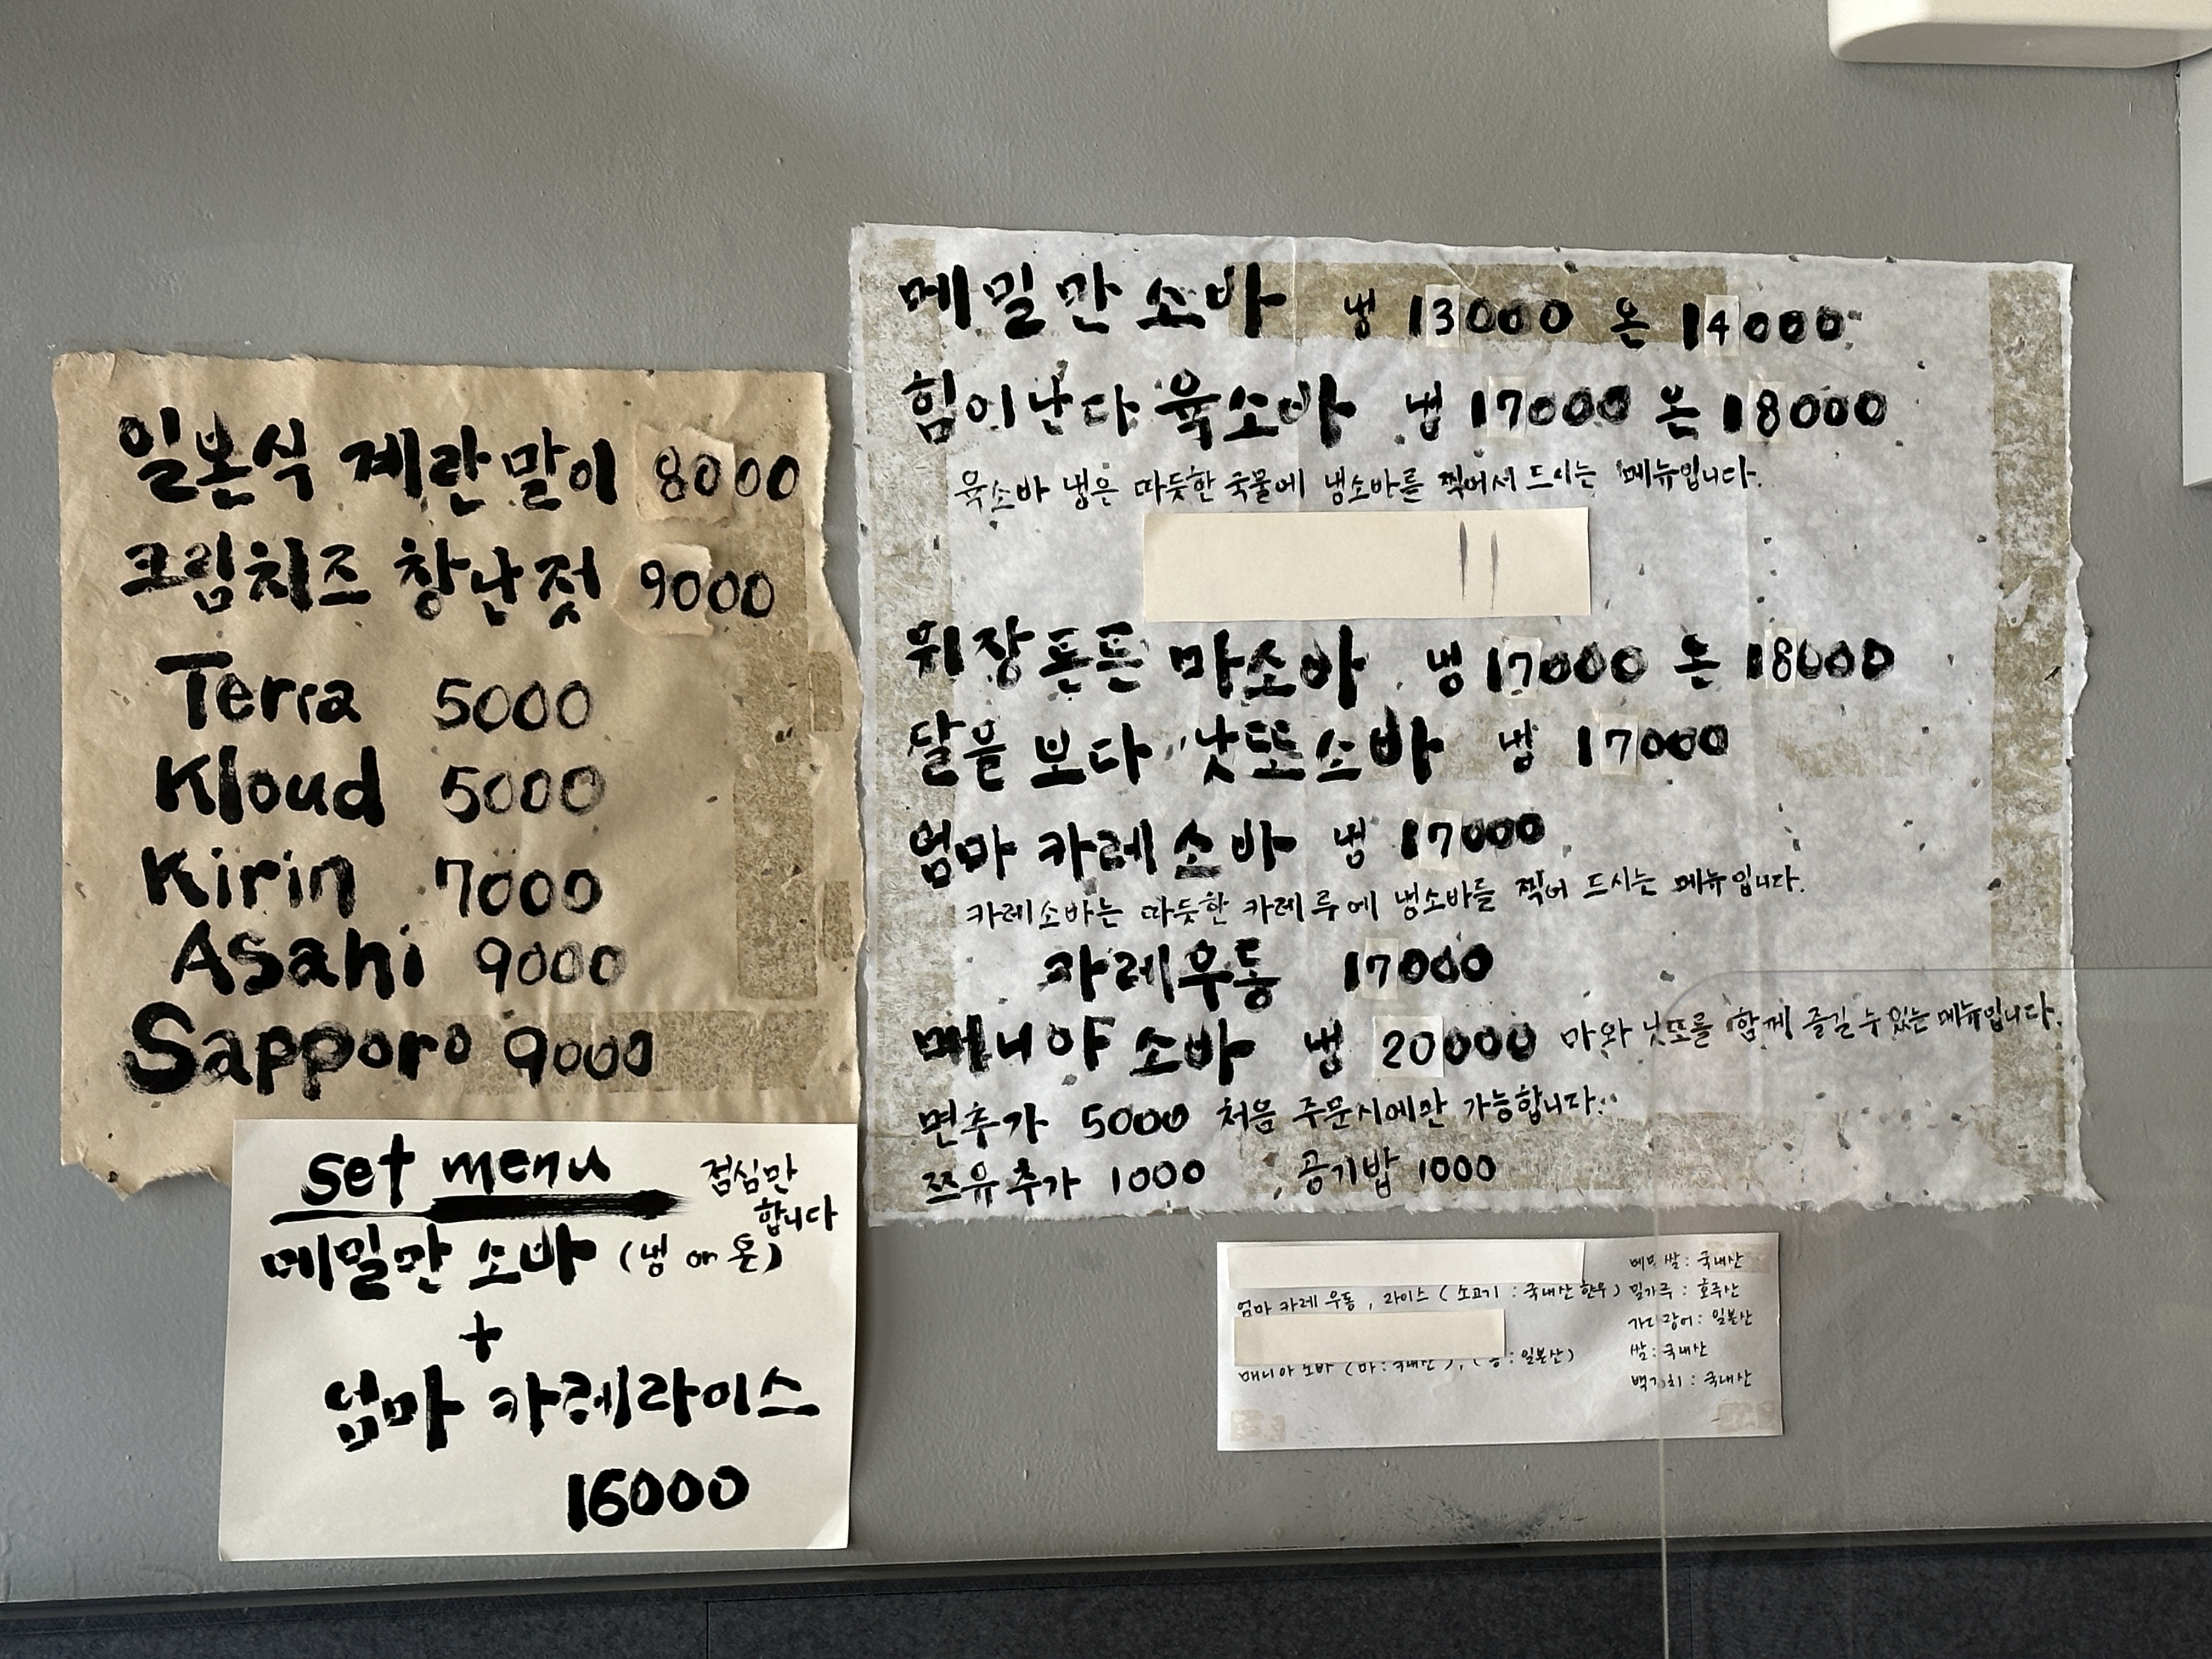 일본식 계란말이 8000
크림치즈 창난젓 9000
Terra 5000
Kloud 5000
Kirin 7000
Asahi 9000
Sapporo 9000
set menu 점심만 합니다
메밀만 소바 (냉 or 온)
+
엄마 카레라이스
16000
메밀만 소바 냉 13000 온 14000
힘이난다 육소바 냉 17000 온 18000
육소바 냉은 따듯한 국물에 냉소바를 찍어서 드시는 메뉴입니다.
위장튼튼 마소바 냉 17000 온 18000
달을 보다 낫또소바 냉 17000
엄마 카레 소바 냉 17000
카레소바는 따듯한 카레루에 냉소바를 찍어 드시는 메뉴입니다.
카레우동 17000
매니아 소바 냉 20000 마와 낫또를 함께 즐길 수 있는 메뉴입니다.
면추가 5000 처음 주문시에만 가능합니다..
쯔유추가 1000 공기밥 1000
엄마 카레 우동, 라이스 (소고기 : 국내산 한우)
매니아 소바 (마 : 국내산), ( : 일본산)
메밀쌀 : 국내산
밀가루 : 호주산
가다랑어 : 일본산
쌀 : 국내산
백김치 : 국내산